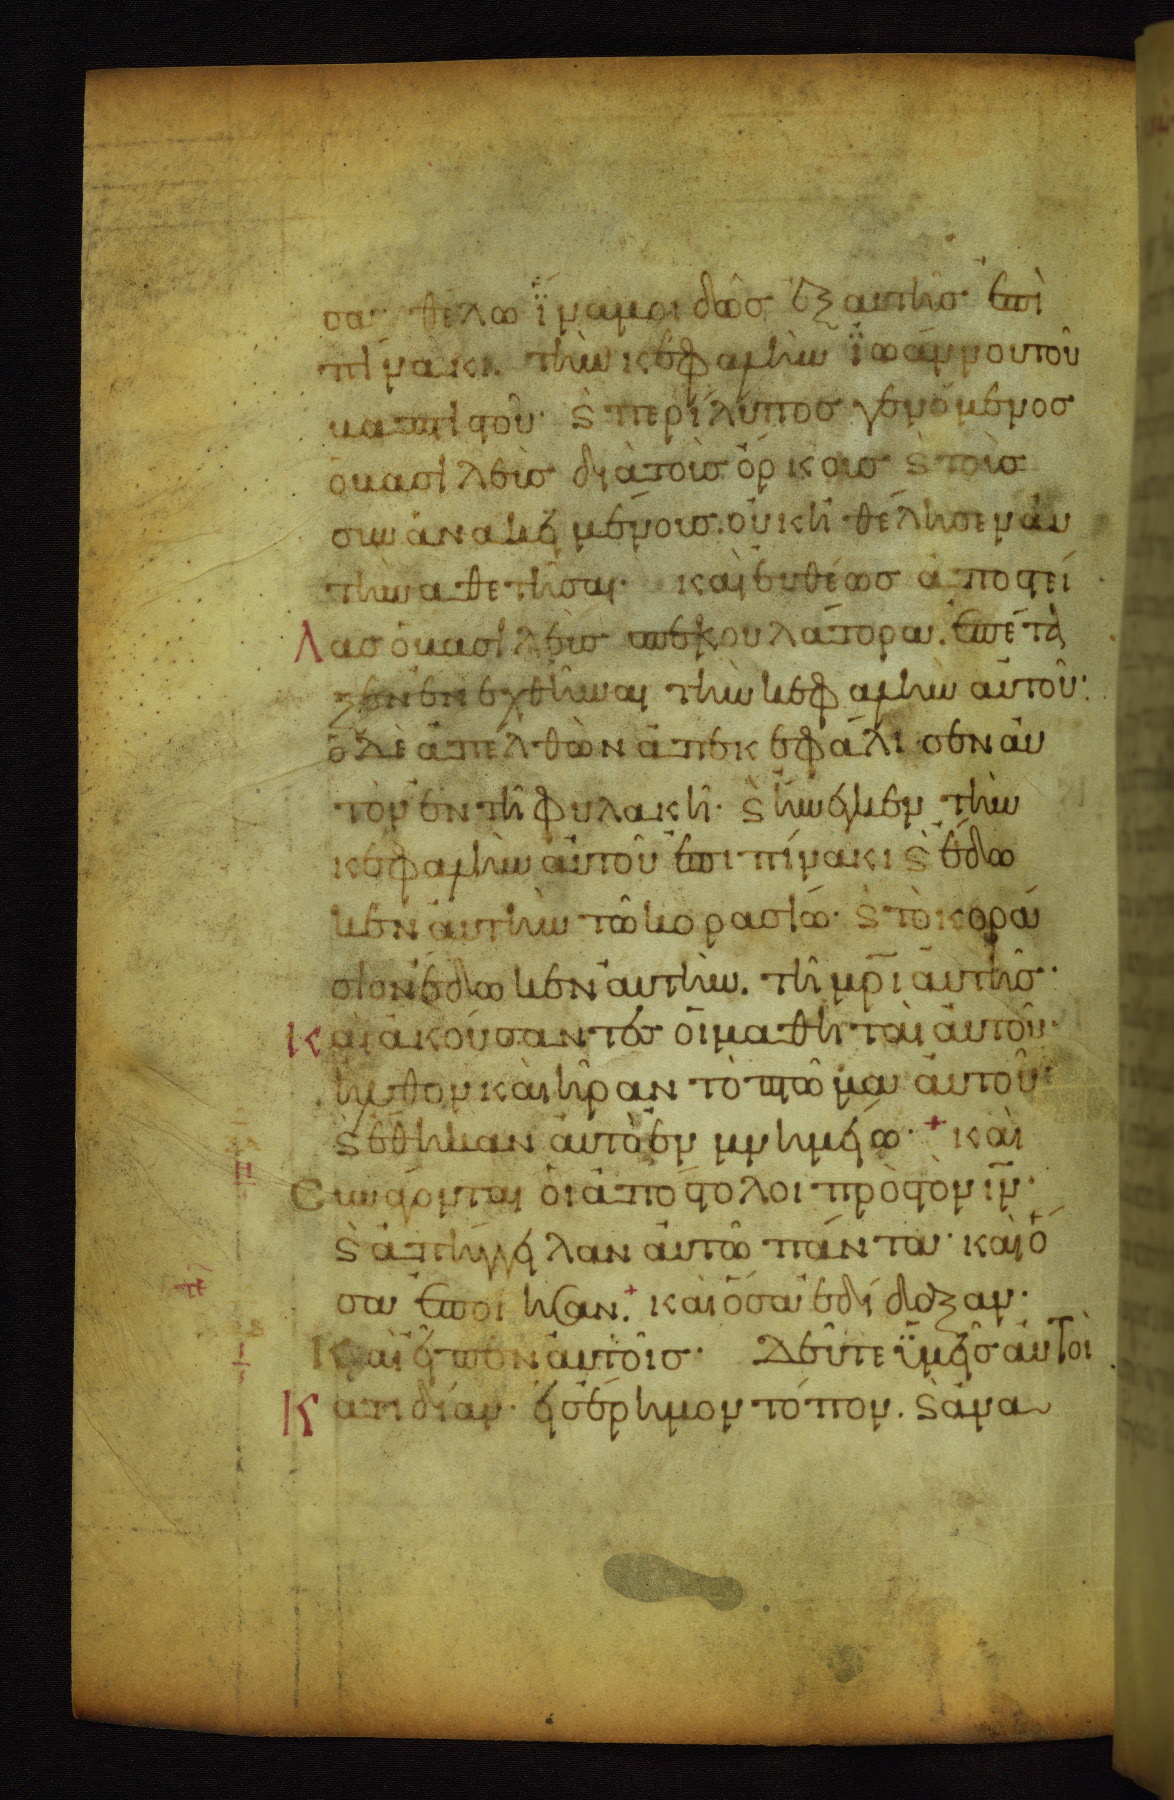 σα· θέλω ἵνα μοι δῶς ἐξ αὐτῆς ἐπὶ
πίνακι τὴν κεφαλὴν Ἰωάννου τοῦ
βαπτιστοῦ· Ϛ περίλυπος γενόμενος
ὁ βασιλεὺς διὰ τοὺς ὅρκους Ϛ τοὺς
συνανακειμένους. οὐκ ἠθέλησεν αὐ
τὴν ἀθετῆσαι· καὶ εὐθέως ἀποστεί
Λας ὁ βασιλεὺς σπεκουλάτορα. ἐπέτα
ξεν ἐνεχθῆναι τὴν κεφαλὴν αὐτοῦ·
ὁ δὲ ἀπελθὼν ἀπεκεφάλισεν αὐ
τὸν ἐν τῇ φυλακῇ· Ϛ ἤνεγκεν τὴν
κεφαλὴν αὐτοῦ ἐπὶ πίνακι Ϛ ἔδω
κεν αὐτὴν τῶ κορασίω· Ϛ τὸ κορά
σιον ἔδωκεν αὐτὴν. τῇ μρ̅ι αὐτῆς·
Καὶ ἀκούσαντες οἱ μαθηταὶ αὐτοῦ·
ἦλθον καὶ ἦραν τὸ πτῶμα αὐτοῦ·
Ϛ ἔθηκαν αὐτὸ ἐν μνημείω· + καὶ
Συνάγονται οἱ ἀπόστολοι πρὸς τὸν ι̅ν·
Ϛ ἀπήγγειλαν αὐτῶ πάντα· καὶ ὅ
σα ἐποίησαν. + καὶ ὅσα ἐδίδαξαν·
Καὶ εἶπεν αὐτοῖς· Δεῦτε ὑμεῖς αὐτοὶ
Κατιδίαν· εἰς ἔρημον τόπον. Ϛ ἀνα